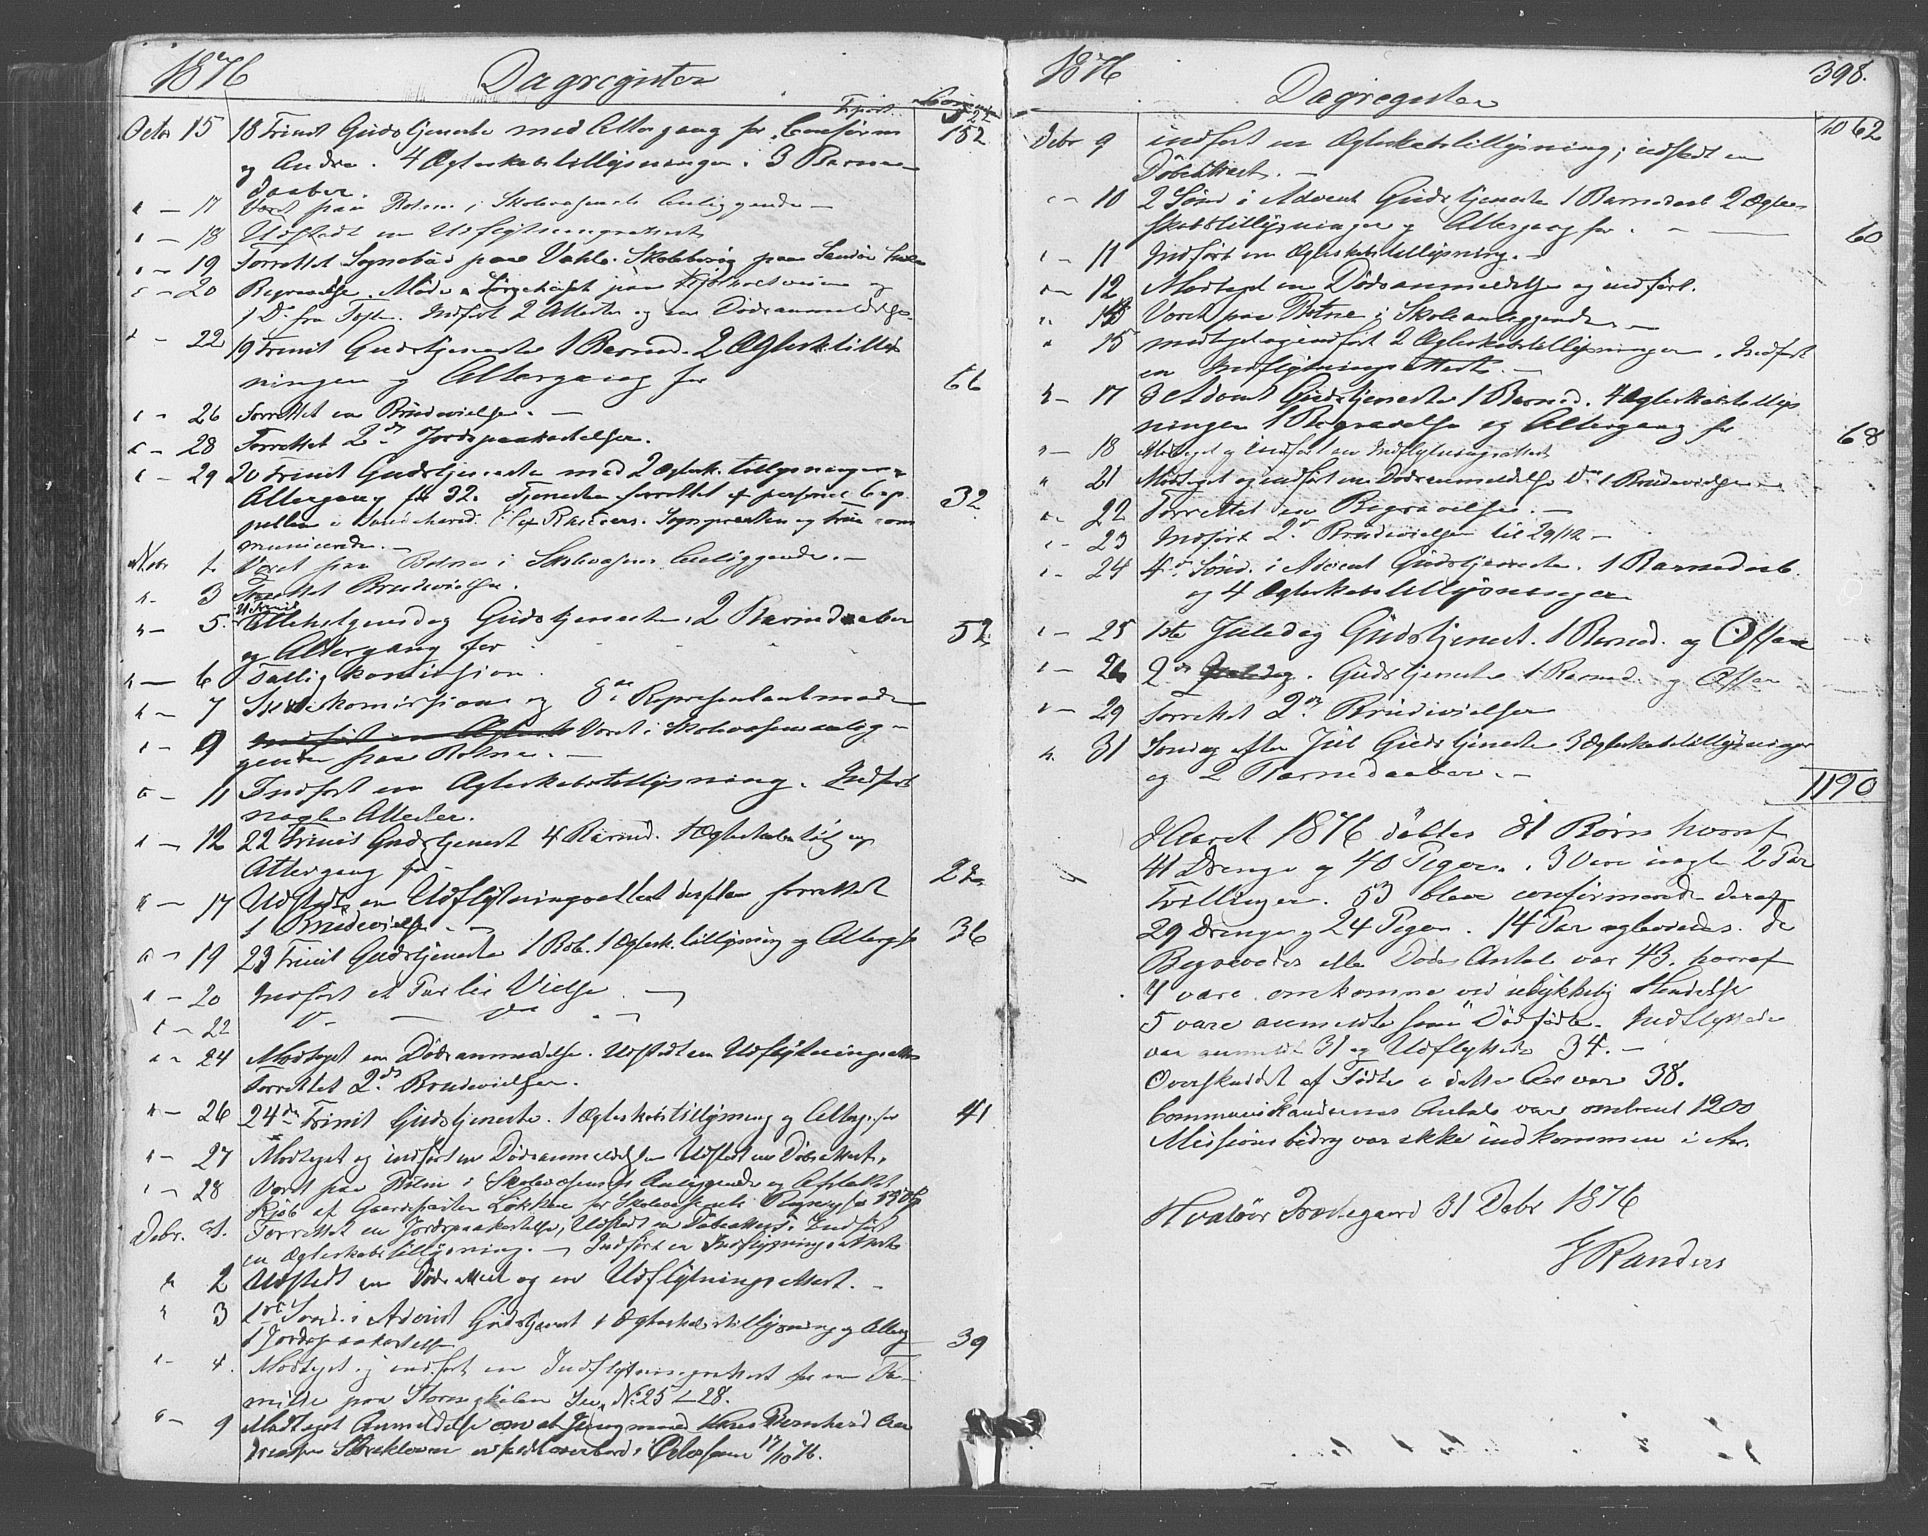 1876 Dagregister
Octbr 15 18 Trinit Gudstjeneste med Altergang for Confirm 152
og Andre. 4 Ægteskabstillysninger. 3 Barne-
daaber.
" — 17 Været paa Botne i Skolevæsenets Anliggende —
" — 18 Udstedt en Udflytningsattest
" — 19 Forrettet Sognebud paa
" — 20 Begravelse. Møde
1 Do fra Indført 2 Attester og en Dødsanmeldelse.
" — 22 19 Trinit Gudstjeneste 1 Barned. 2 Ægtesk.tillys
ninger og Altergang for 66
" — 26 Forrettet en Brudevielse. —
" — 28 Forrettet 2de Jordspaakastelser.
" — 29 20 Trinit Gudstjeneste med 2 Ægtesk. tillysninger
Altergang for 32. Tjenesten forrettet af personel Cap 32
pellan i Sandeherred. Sognepræsten og com
municerede. —
Novbr 1 Været paa Botne i Skolevæsens Anliggende. —
" — 3 Forrettet Brudevielse.
" — 5. Allehelgensdag Gudstjeneste. 2 Barnedaaber
og Altergang for 52
" — 6 Fattigkomission.
" — 7 Skolekomission og Repræsentantmøde
" — 9 Været i Skolevæsens anlig-
gender paa Botne. —
" — 11 Indført en Ægteskabstillysning. Indført
nogle Attester.
" — 12 22 Trinit Gudstjenest 4 Barned. 1 Ægteskabstil og
Altergang for 22
" — 17 Udstedt en Udflytningsattest desuden forrettet
1 Brudevielse. —
" — 19 23 Trinit Gudstjeneste 1 Bdb. 1 Ægtesk. tillysning og Alterg. fr 36
" — 20 Indført et Par til Vielse. —
" — 22 Do — Do —
" — 24 Modtaget en Dødsanmeldelse. Udstedt en Udflytningsattest
Forrettet 2de Brudevielser.
" — 26 24de Trinit Gudstjeneste. 1 Ægteskabstillysning og Alterg. for 41
" — 27 Modtaget og indført en Dødsanmeldelse Udstedt en Døbeattest.
" — 28 Været paa Botne i Skolevæsenets Anliggende og afsluttet
Kjøb af Gaardeparten Løkken for Skolevæsenets Regning for
Debr. 1. Forrettet en Jordspaakastelse, Udstedt en Døbeattest. Indført
en Ægteskabstillysning. — Indført en Indflytningsattest
" 2 Udstedt en Døbeattest og en Udflytningsattest. —
" 3 1ste Sønd. i Advent Gudstjenest 1 Ægteskabstillysning og Alterg
1 Jordspaakastelse 39
" — 4. Modtaget og indført en Indflytningsattest for en Fa-
milie paa See No 25 — 28.
" — 9 Modtaget Anmeldelse om at Ungmand Hans Bernhard
er faldt overbord i 17/10 76.
1876 Dagregister 398.
Debr 9 indført en Ægteskabstillysning, udstedt en 1062
Døbeattest. —
" — 10 2 Sønd i Advent Gudstjeneste 1 Barnedaab 2 Ægte-
skabstillysninger og Altergang for. — 60
" — 11 Indført en Ægteskabstillysning. —
" — 12 Modtaget en Dødsanmeldelse og indført.
" 13 Været paa Botne i Skoleanliggende. —
" 15 modtaget og indført 2 Ægteskabstillysninger. Indført
en Indflytningsattest. —
" — 17 3 Advent Gudstjeneste 1 Barned. 4 Ægteskabstillys
ninger 1 Begravelse og Altergang for 68
" — 18 Modtaget og indført en Indflytningsattest
" 21 Modtaget og indført en Dødsanmeldelse Do 1 Brudevielse
" — 22 Forrettet en Begravelse. —
" — 23 Indført 2de Brudevielser til 29/12 —
" — 24 4de Sønd. i Advent Gudstjeneste. 1 Barnedaab.
og 4 Ægteskabstillysninger
" — 25 1ste Juledag Gudstjenest. 1 Barned. og Offer
" — 26 2den Juledag. Gudstjeneste 1 Barned. og Offer
" — 29 Forrettet 2de Brudevielser
" 31 Søndag efter Jul Gudstjeneste 3 Ægteskabstillysninger
og 2 Barnedaaber. —
1190
I Aaret 1876 døbtes 81 Børn hvoraf
41 Drenge og 40 Piger. 3 vare uægte 2 Par
Tvillinger. 53 bleve confirmerede deraf
29 Drenge og 24 Piger. 14 Par ægteviedes. De
Begravedes elle Dødes Antal var 43. hvoraf
4 vare omkomne ved ulykkelig Hendelse
5 vare anmeldte som Dødfødte. Indflyttede
var anmeldt 31 og Udflyttede 34. —
Overskuddet af Fødte i dette Aar var 38.
Communikandernes Antal var omtrent 1200
Missionsbidrag var ikke indkommen i Aar.
Hvaløer Præstegaard 31 Debr 1876
Randers